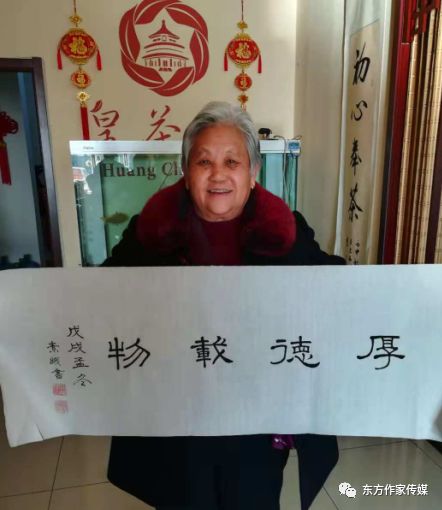 皇茶
Huang Ch
初心奉茶
福
福
厚德載物
戊戌孟冬
东方作家传媒